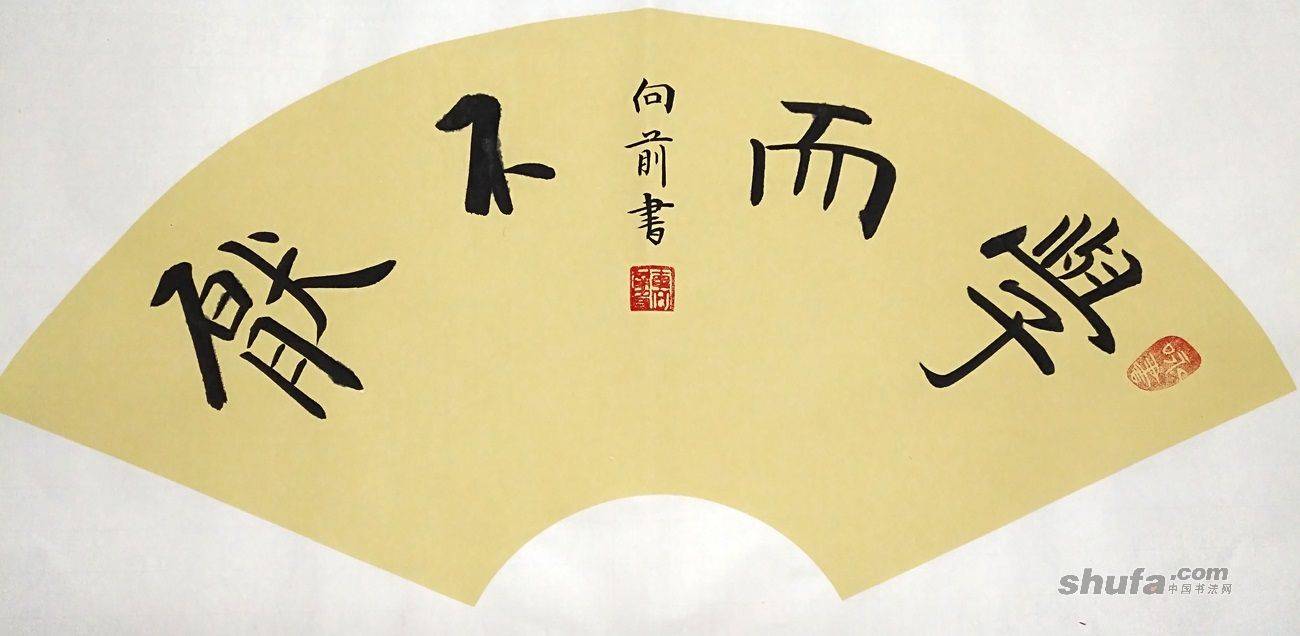 學而不厭
向前書
shufa.com
中国书法网